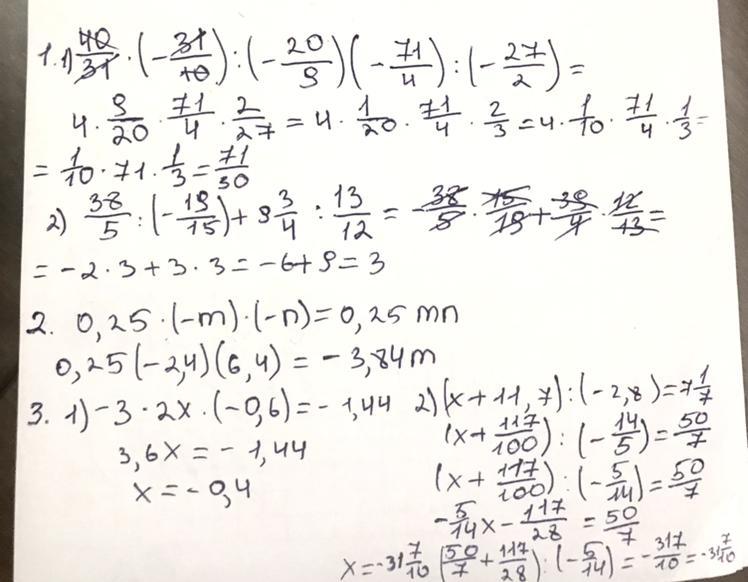 1. 1) 40/31 · (-31/10) : (-20/9)(-71/4) : (-27/2) =
4 · 9/20 · 71/4 · 2/27 = 4 · 1/20 · 71/4 · 2/3 = 4 · 1/10 · 71/4 · 1/3 =
= 1/10 · 71 · 1/3 = 71/30
2) 38/5 : (-19/15) + 9 3/4 : 13/12 = -38/5 · 15/19 + 39/4 · 12/13 =
= -2 · 3 + 3 · 3 = -6 + 9 = 3
2. 0,25 · (-m) · (-n) = 0,25 mn
0,25(-2,4)(6,4) = -3,84m
3. 1) -3 · 2x · (-0,6) = -1,44
3,6x = -1,44
x = -0,4
2) (x + 11,7) : (-2,8) = 7 1/7
(x + 117/100) : (-14/5) = 50/7
(x + 117/100) : (-5/14) = 50/7
-5/14x - 117/28 = 50/7
x = -31 7/10 (50/7 + 117/28) : (-5/14) = -317/10 = -31 7/10